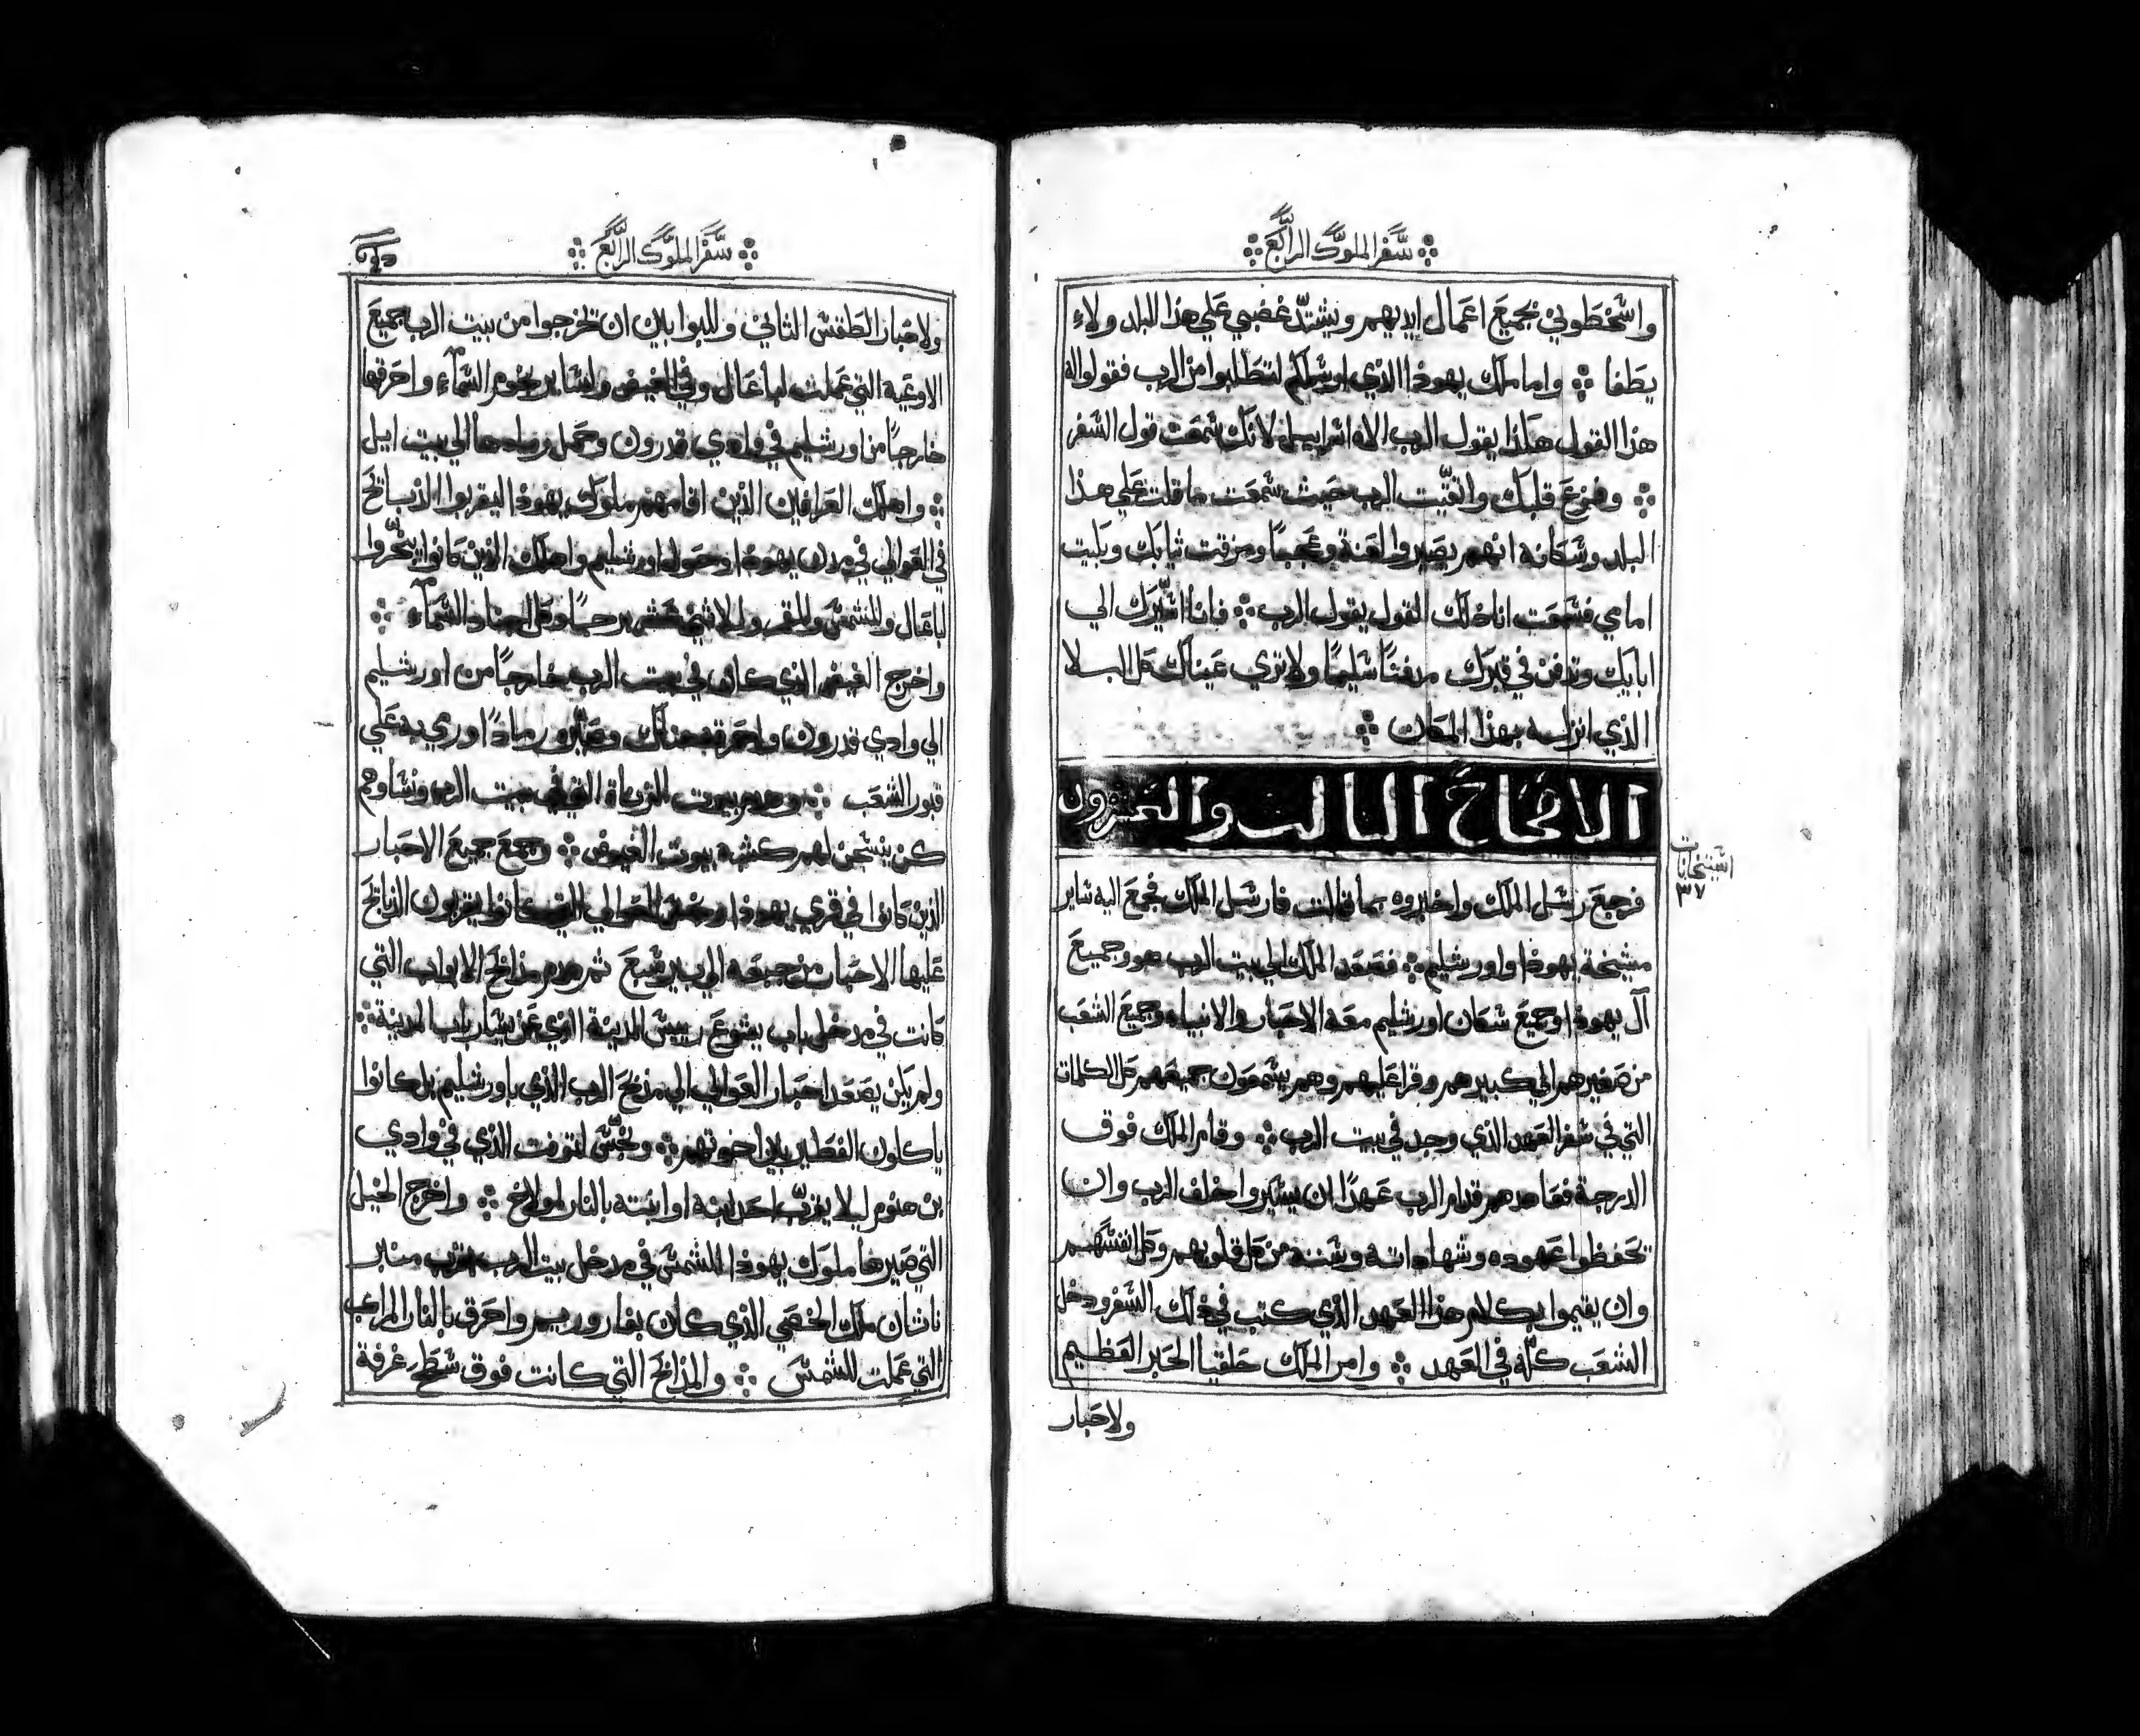 سفر الملوك الرابع
واسخطوني بجميع اعمال ايديهم ويشتد غضبي علي هذا البلد ولاء
يطفا ܀ واما ملك يهوذا الذي ارسلكم لتطلبوا من الرب فقولوا له
هذا القول هكذا يقول الرب الاه اسراييل لانك سمعت قول السفر
܀ وفزع قلبك واتقيت الرب حيث سمعت ما قلت علي هذا
البلد وسكانه انهم يصيروا لعنة وعجبا ومزقت ثيابك وبكيت
امامي فسمعت انا ذلك القول يقول الرب ܀ فانا اسيرك الي
ابايك وتدفن في قبرك مدفنا سليما ولا تري عيناك كل البلا
الذي انزله بهذا المكان ܀
الاصحاح الثالث والعشرون
استنخابات
٣٧
فرجع رسل الملك واخبروه بما قالت فارسل الملك فجمع اليه ساير
مشيخة يهوذا واورشليم ܀ فصعد الملك الي بيت الرب هو وجميع
آل يهوذا وجميع سكان اورشليم معه الاحبار والانبياء وجميع الشعب
من صغيرهم الي كبيرهم وقرا عليهم وهم يسمعون جميعهم كل الكلمات
التي في سفر العهد الذي وجد في بيت الرب ܀ وقام الملك فوق
الدرجة فعاهدهم قدام الرب عهدا ان يسيروا خلف الرب وان
تحفظوا عهوده وشهاداته وسننه من كل قلوبهم وكل انفسهم
وان يقيموا بكلام هذا العهد الذي كتب في ذلك السفر ودخل
الشعب كله في العهد ܀ وامر الملك حلقيا الحبر العظيم
ولاحبار
سفر الملوك الرابع
ولاحبار الطقس الثاني وللبوابين ان تخرجوا من بيت الرب جميع
الاوعية التي عملت لباعال وفي الغيض ولساير نجوم السماء واحرقها
خارجا من اورشليم في وادي قدرون وحمل رمادها الي بيت ايل
܀ واهلك العرافين الذين اقامهم ملوك يهوذا ليقربوا الذبايح
في العوالي في مدن يهوذا وحول اورشليم واهلك الذين كانوا يبخروا
لباعال وللشمس وللقمر وللاثني عشر برجا وكل اجناد السماء ܀
واخرج الغيض الذي كان في بيت الرب خارجا من اورشليم
الي وادي قدرون واحرقه هناك وصيره رمادا وري به علي
قبور الشعب ܀ وهدم بيوت الزناة التي في بيت الرب ونساوهم
كن ينسجن لهم كشبه بيوت الغيض ܀ وجمع جميع الاحبار
الذين كانوا في قري يهوذا ونجس العوالي التي كانوا يقربون الذبايح
عليها الاحبار من جبعه الي بير سبع ثم هدم مذابح الابواب التي
كانت في مدخل باب يشوع رييس المدينة الذي عن يسار باب المدينة ܀
ولم يكن يصعد احبار العوالي الي مذبح الرب الذي باورشليم بل كانوا
ياكلون الفطير بين اخوتهم ܀ ونجس لتوفت الذي في وادي
بن هنوم ليلا يقرب احد ابنه او ابنته بالنار لمولاخ ܀ واخرج الخيل
التي صيرها ملوك يهوذا للشمس في مدخل بيت الرب بقرب منبر
ناثان ملك الخصي الذي كان بفاروريم واحرق بالنار المراكب
التي عملت للشمس ܀ والمذابح التي كانت فوق سطح غرفة